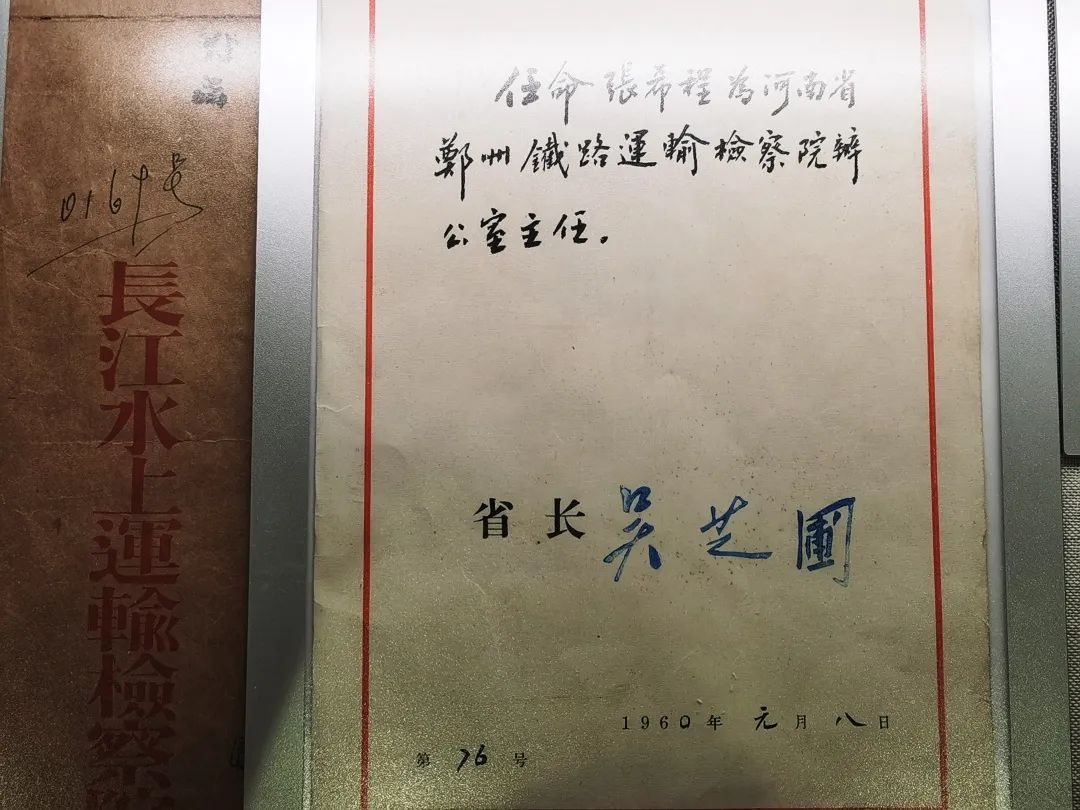 長江水上運輸檢察院
任命張希程為河南省
鄭州鐵路運輸檢察院辦
公室主任。
省长 吴芝圃
1960年元月八日
第76号